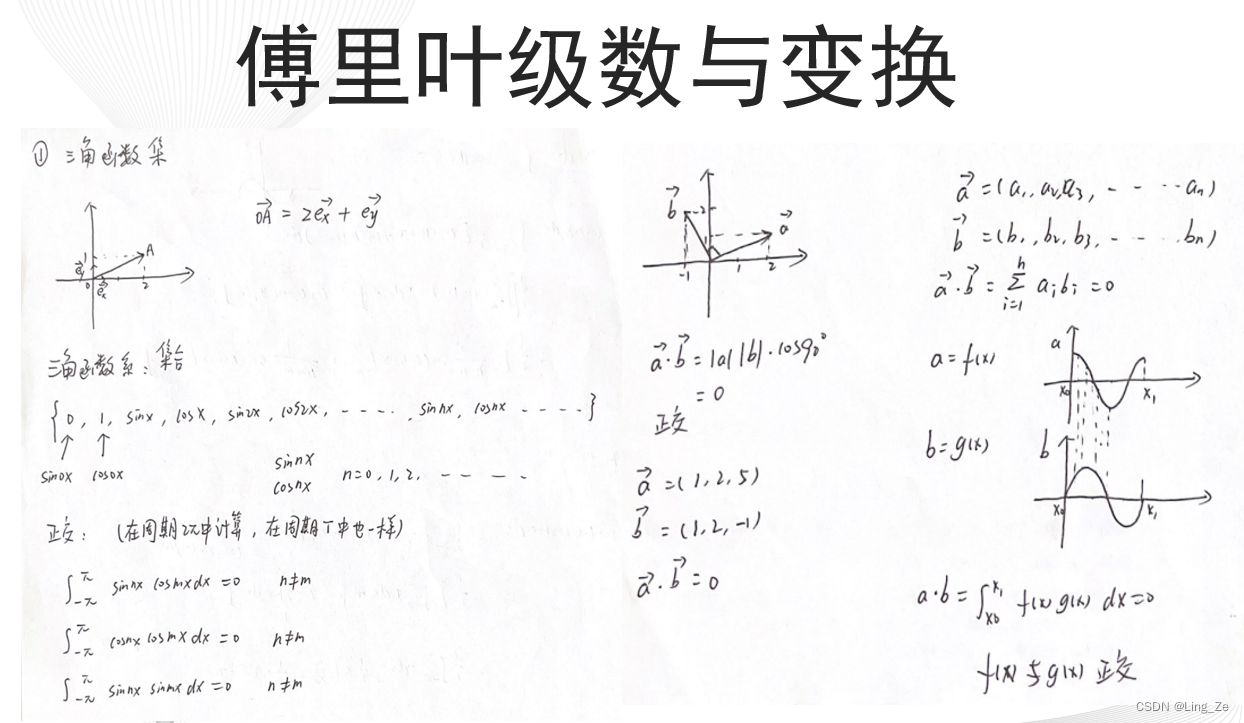 傅里叶级数与变换
① 三角函数集
OA = 2ex + ey
1
A
ey
0
ex
2
三角函数系：集合
{0, 1, sinx, cosx, sin2x, cos2x, ---- sinnx, cosnx ----}
sin0x cos0x
sinnx
cosnx
n=0, 1, 2, ----
正交：（在周期2π中计算，在周期T中也一样）
∫_{-π}^{π} sinnx cosmx dx = 0 n≠m
∫_{-π}^{π} cosnx cosmx dx = 0 n≠m
∫_{-π}^{π} sinnx sinmx dx = 0 n≠m
b
2
a
-1
1
2
a·b = |a||b|·cos90°
= 0
正交
a = (1, 2, 5)
b = (1, 2, -1)
a·b = 0
a = (a1, a2, a3, ---- an)
b = (b1, b2, b3, ---- bn)
a·b = Σ_{i=1}^{n} aibi = 0
a = f(x)
a
x0
x1
b = g(x)
b
x0
x1
a·b = ∫_{x0}^{x1} f(x)g(x) dx = 0
f(x)与g(x)正交
CSDN @Ling_Ze